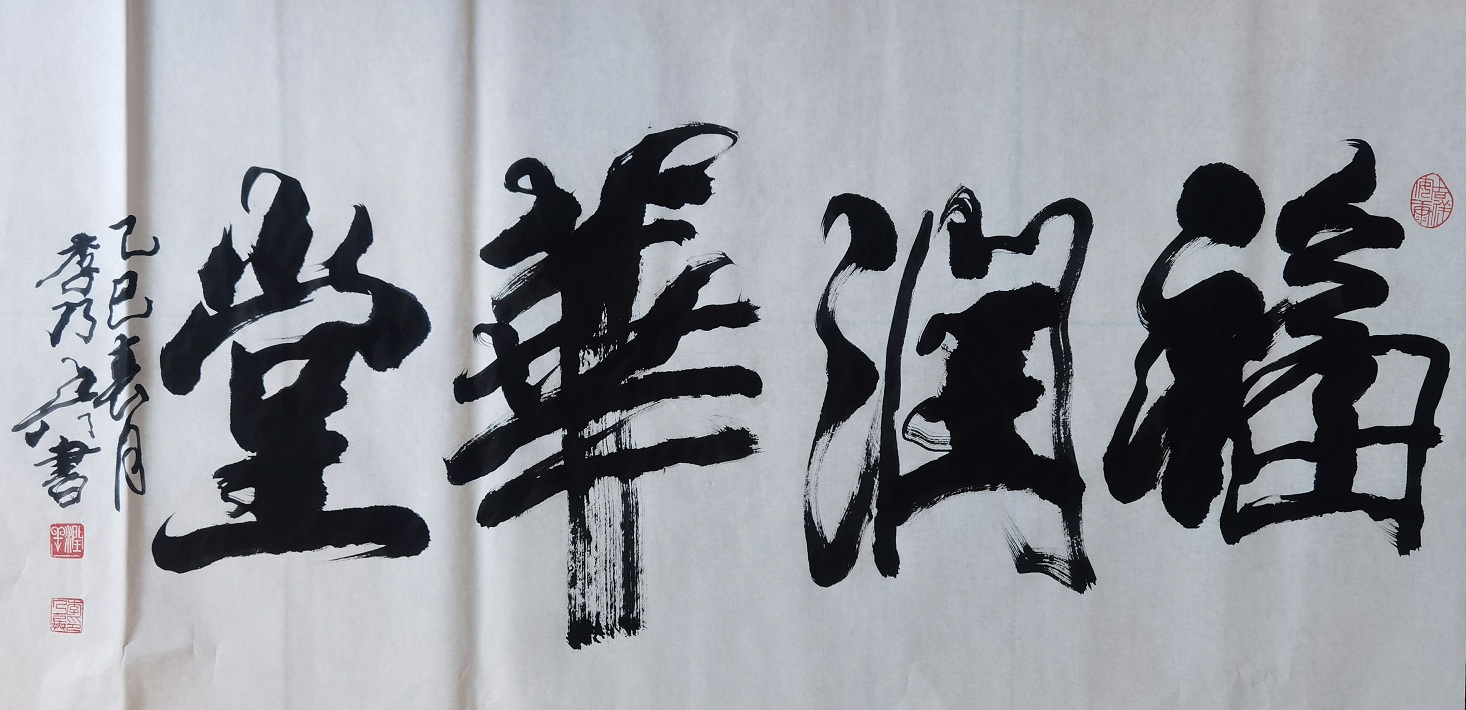 福潤華堂
乙巳春月
李乃
書